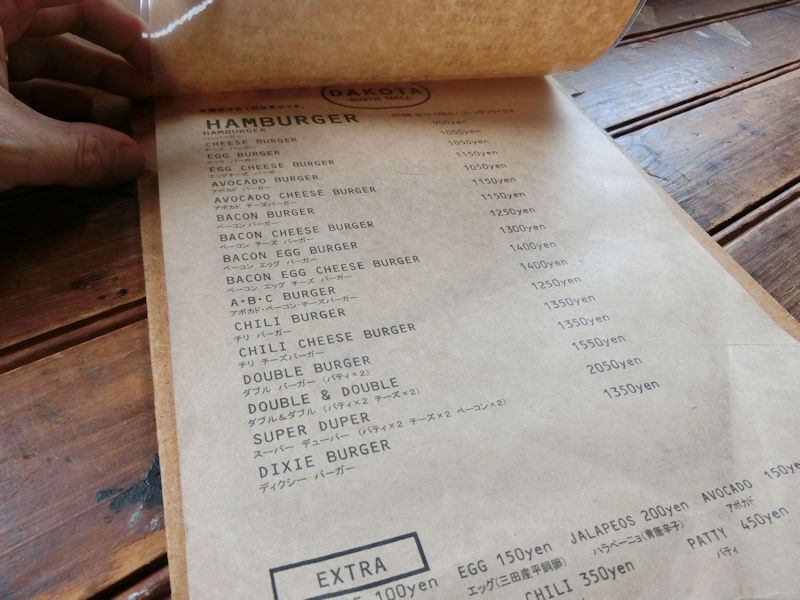 DAKOTA
RUSTIC TABLE
HAMBURGER
HAMBURGER 900yen
ハンバーガー
CHEESE BURGER 1000yen
チーズ バーガー
EGG BURGER 1050yen
エッグ バーガー
EGG CHEESE BURGER 1150yen
エッグチーズ バーガー
AVOCADO BURGER 1050yen
アボカド バーガー
AVOCADO CHEESE BURGER 1150yen
アボカド チーズバーガー
BACON BURGER 1150yen
ベーコンバーガー
BACON CHEESE BURGER 1250yen
ベーコン チーズ バーガー
BACON EGG BURGER 1300yen
ベーコン エッグ バーガー
BACON EGG CHEESE BURGER 1400yen
ベーコン エッグ チーズ バーガー
A·B·C BURGER 1400yen
アボカド・ベーコン・チーズバーガー
CHILI BURGER 1250yen
チリ バーガー
CHILI CHEESE BURGER 1350yen
チリ チーズバーガー
DOUBLE BURGER 1350yen
ダブル バーガー (パティ×2)
DOUBLE & DOUBLE 1550yen
ダブル&ダブル (パティ×2 チーズ×2)
SUPER DUPER 2050yen
スーパー デューパー (パティ×2 チーズ×2 ベーコン×2)
DIXIE BURGER 1350yen
ディクシー バーガー
EXTRA
100yen EGG 150yen JALAPEOS 200yen AVOCADO 150ye
エッグ(三田産平飼卵) ハラペーニョ(青唐辛子) アボカド
CHILI 350yen PATTY 450yen
パティ